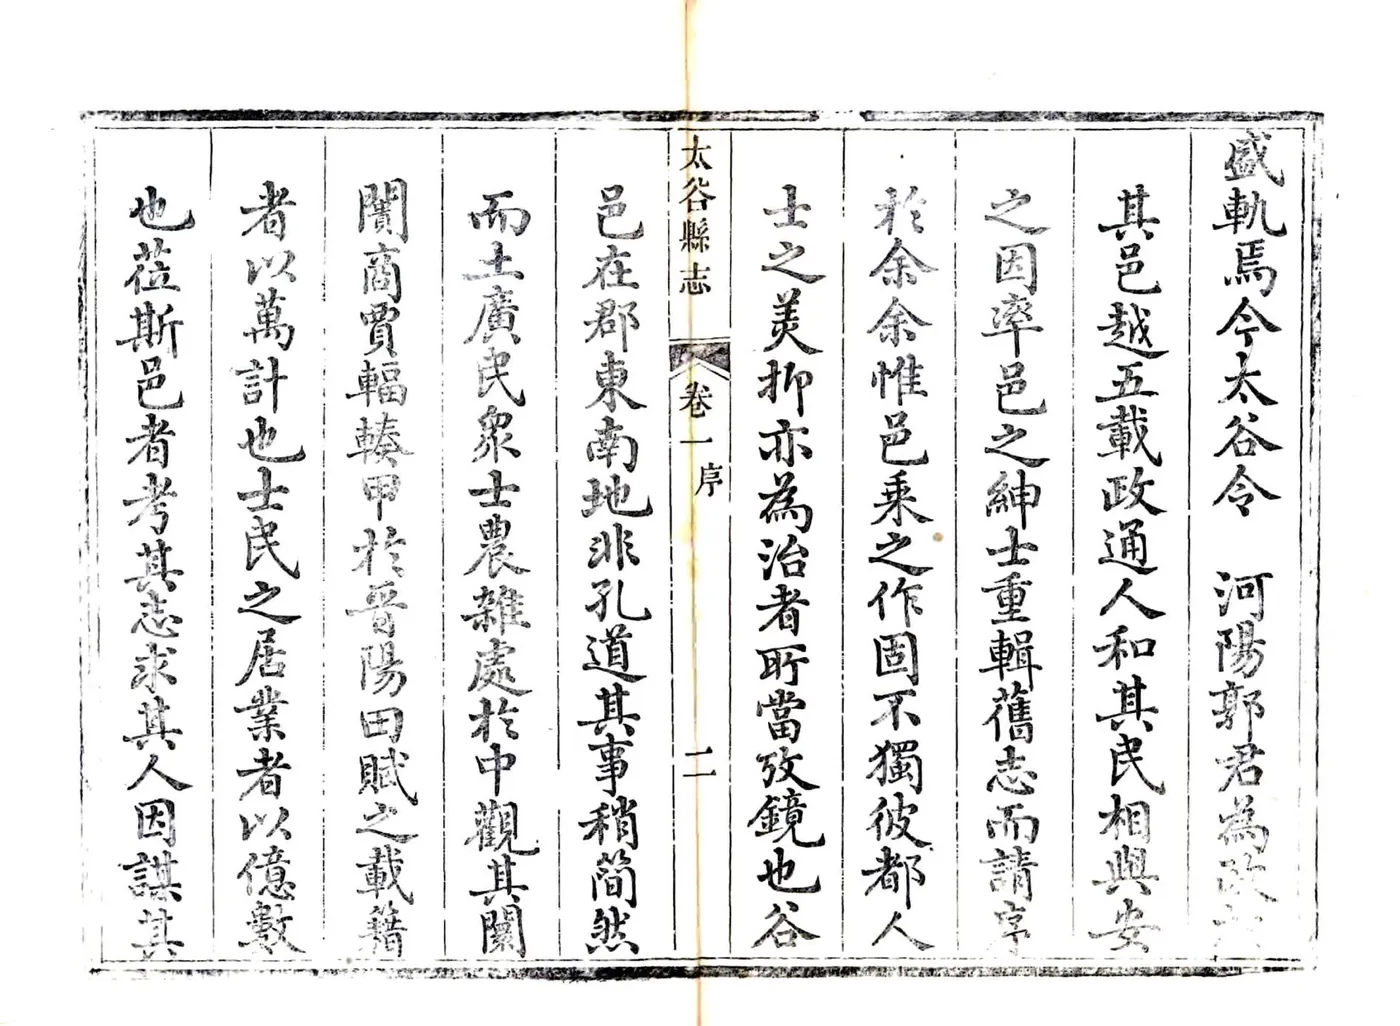 盛軌焉今太谷令 河陽郭君為政於
其邑越五載政通人和其民相與安
之因率邑之紳士重輯舊志而請序
於余余惟邑乗之作固不獨彼都人
士之美抑亦為治者所當攷鏡也谷
太谷縣志 卷一 序 二
邑在郡東南地非孔道其事稍簡然
而土廣民衆士農雜處於中觀其闤
闠商賈輻輳甲於晉陽田賦之載籍
者以萬計也士民之居業者以億數
也莅斯邑者考其志求其人因謀其